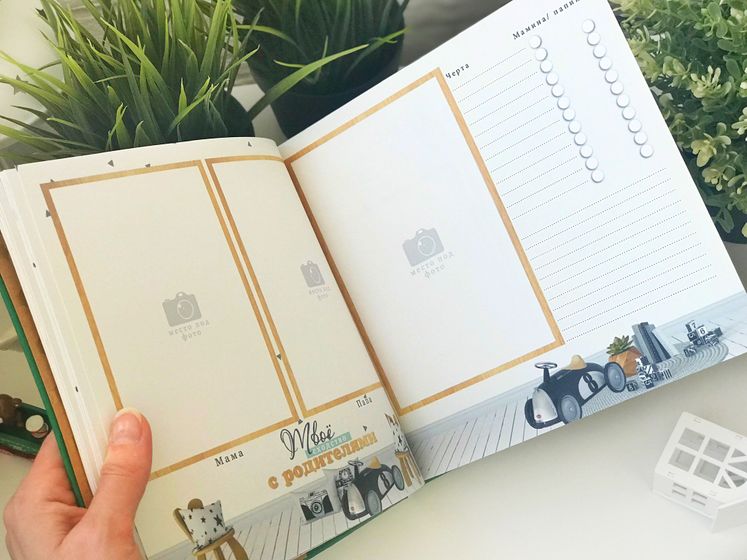 место под
фото
место под
фото
Мама
Папа
Твоё
сходство
с родителями
место под
фото
Черта
Мамина/ папин
8